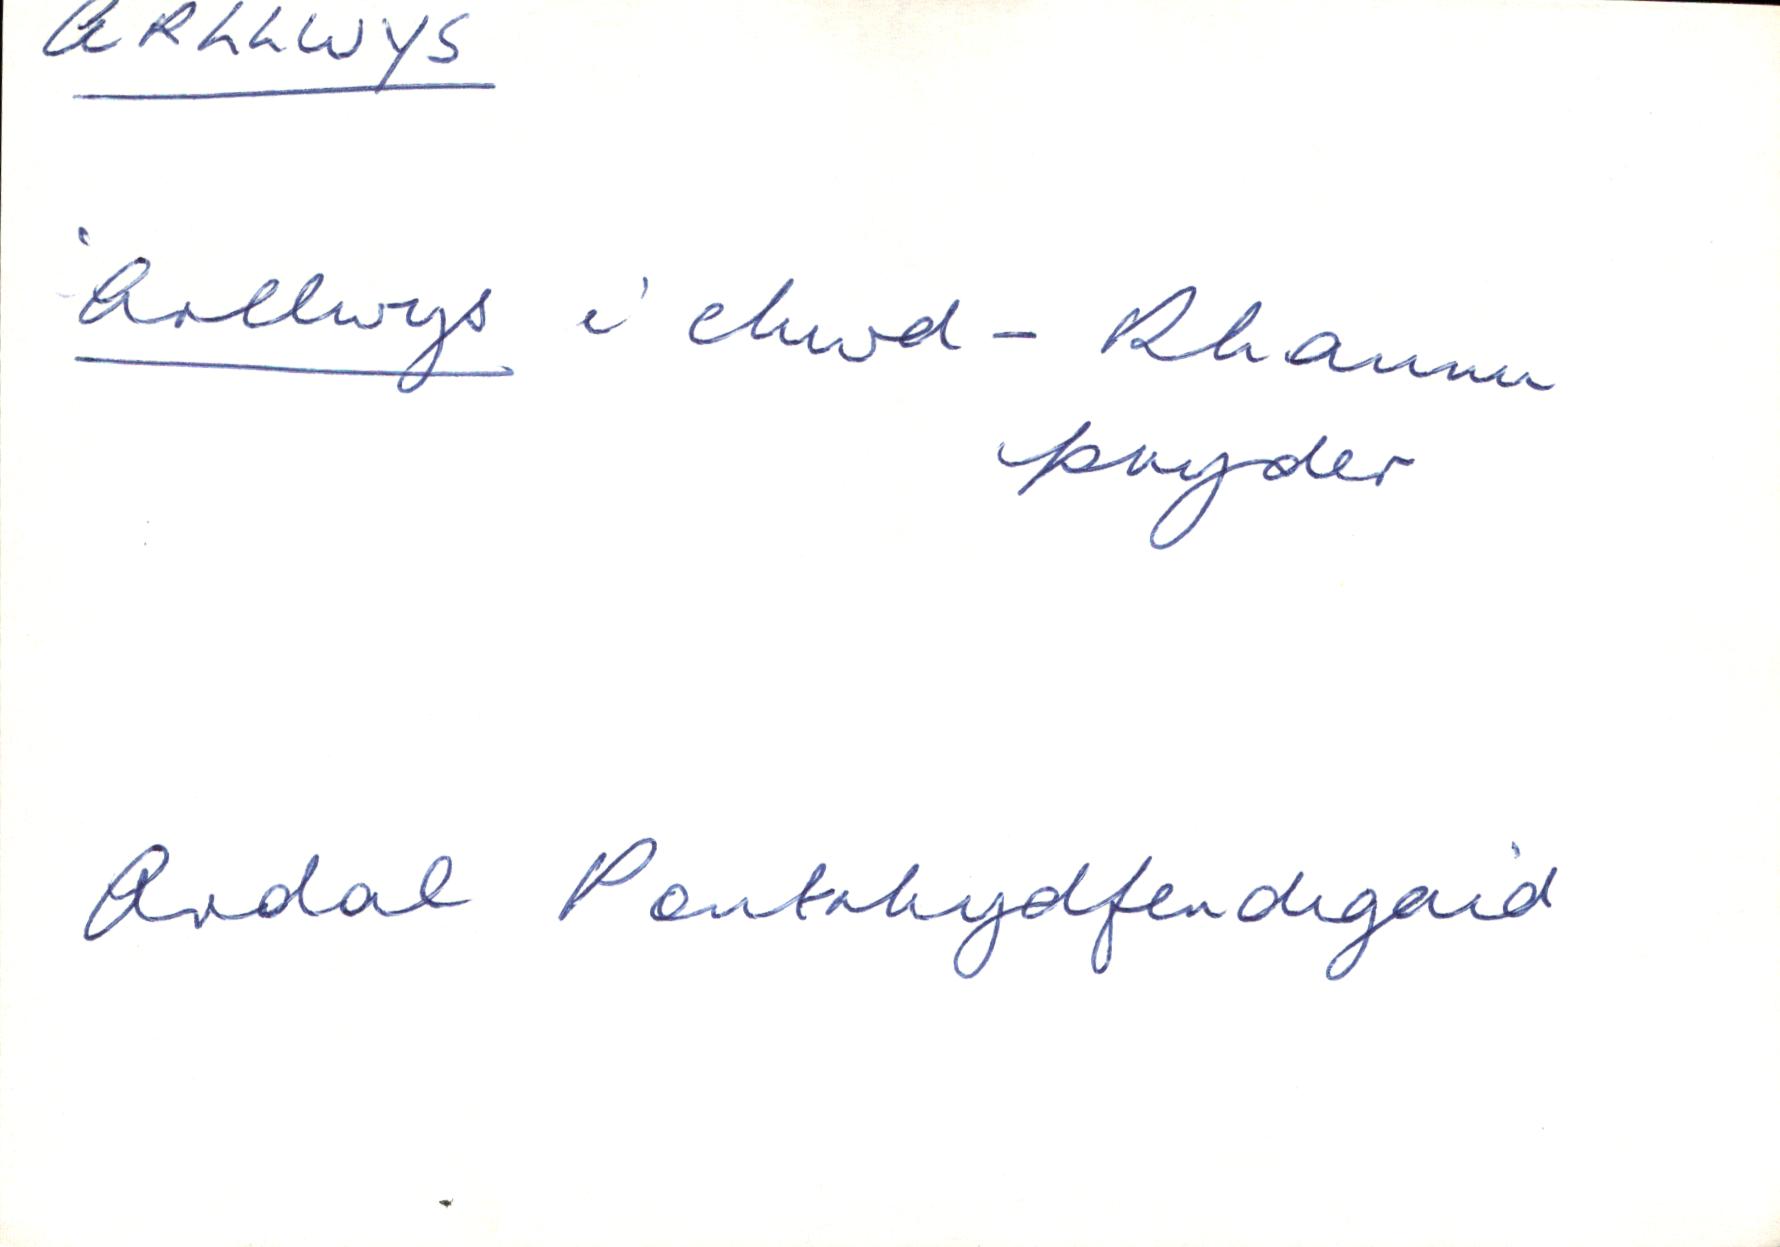 ARLLWYS
'Arllwys i' chwd – Rhannu
pryder
Ardal Pontrhydfendigaid